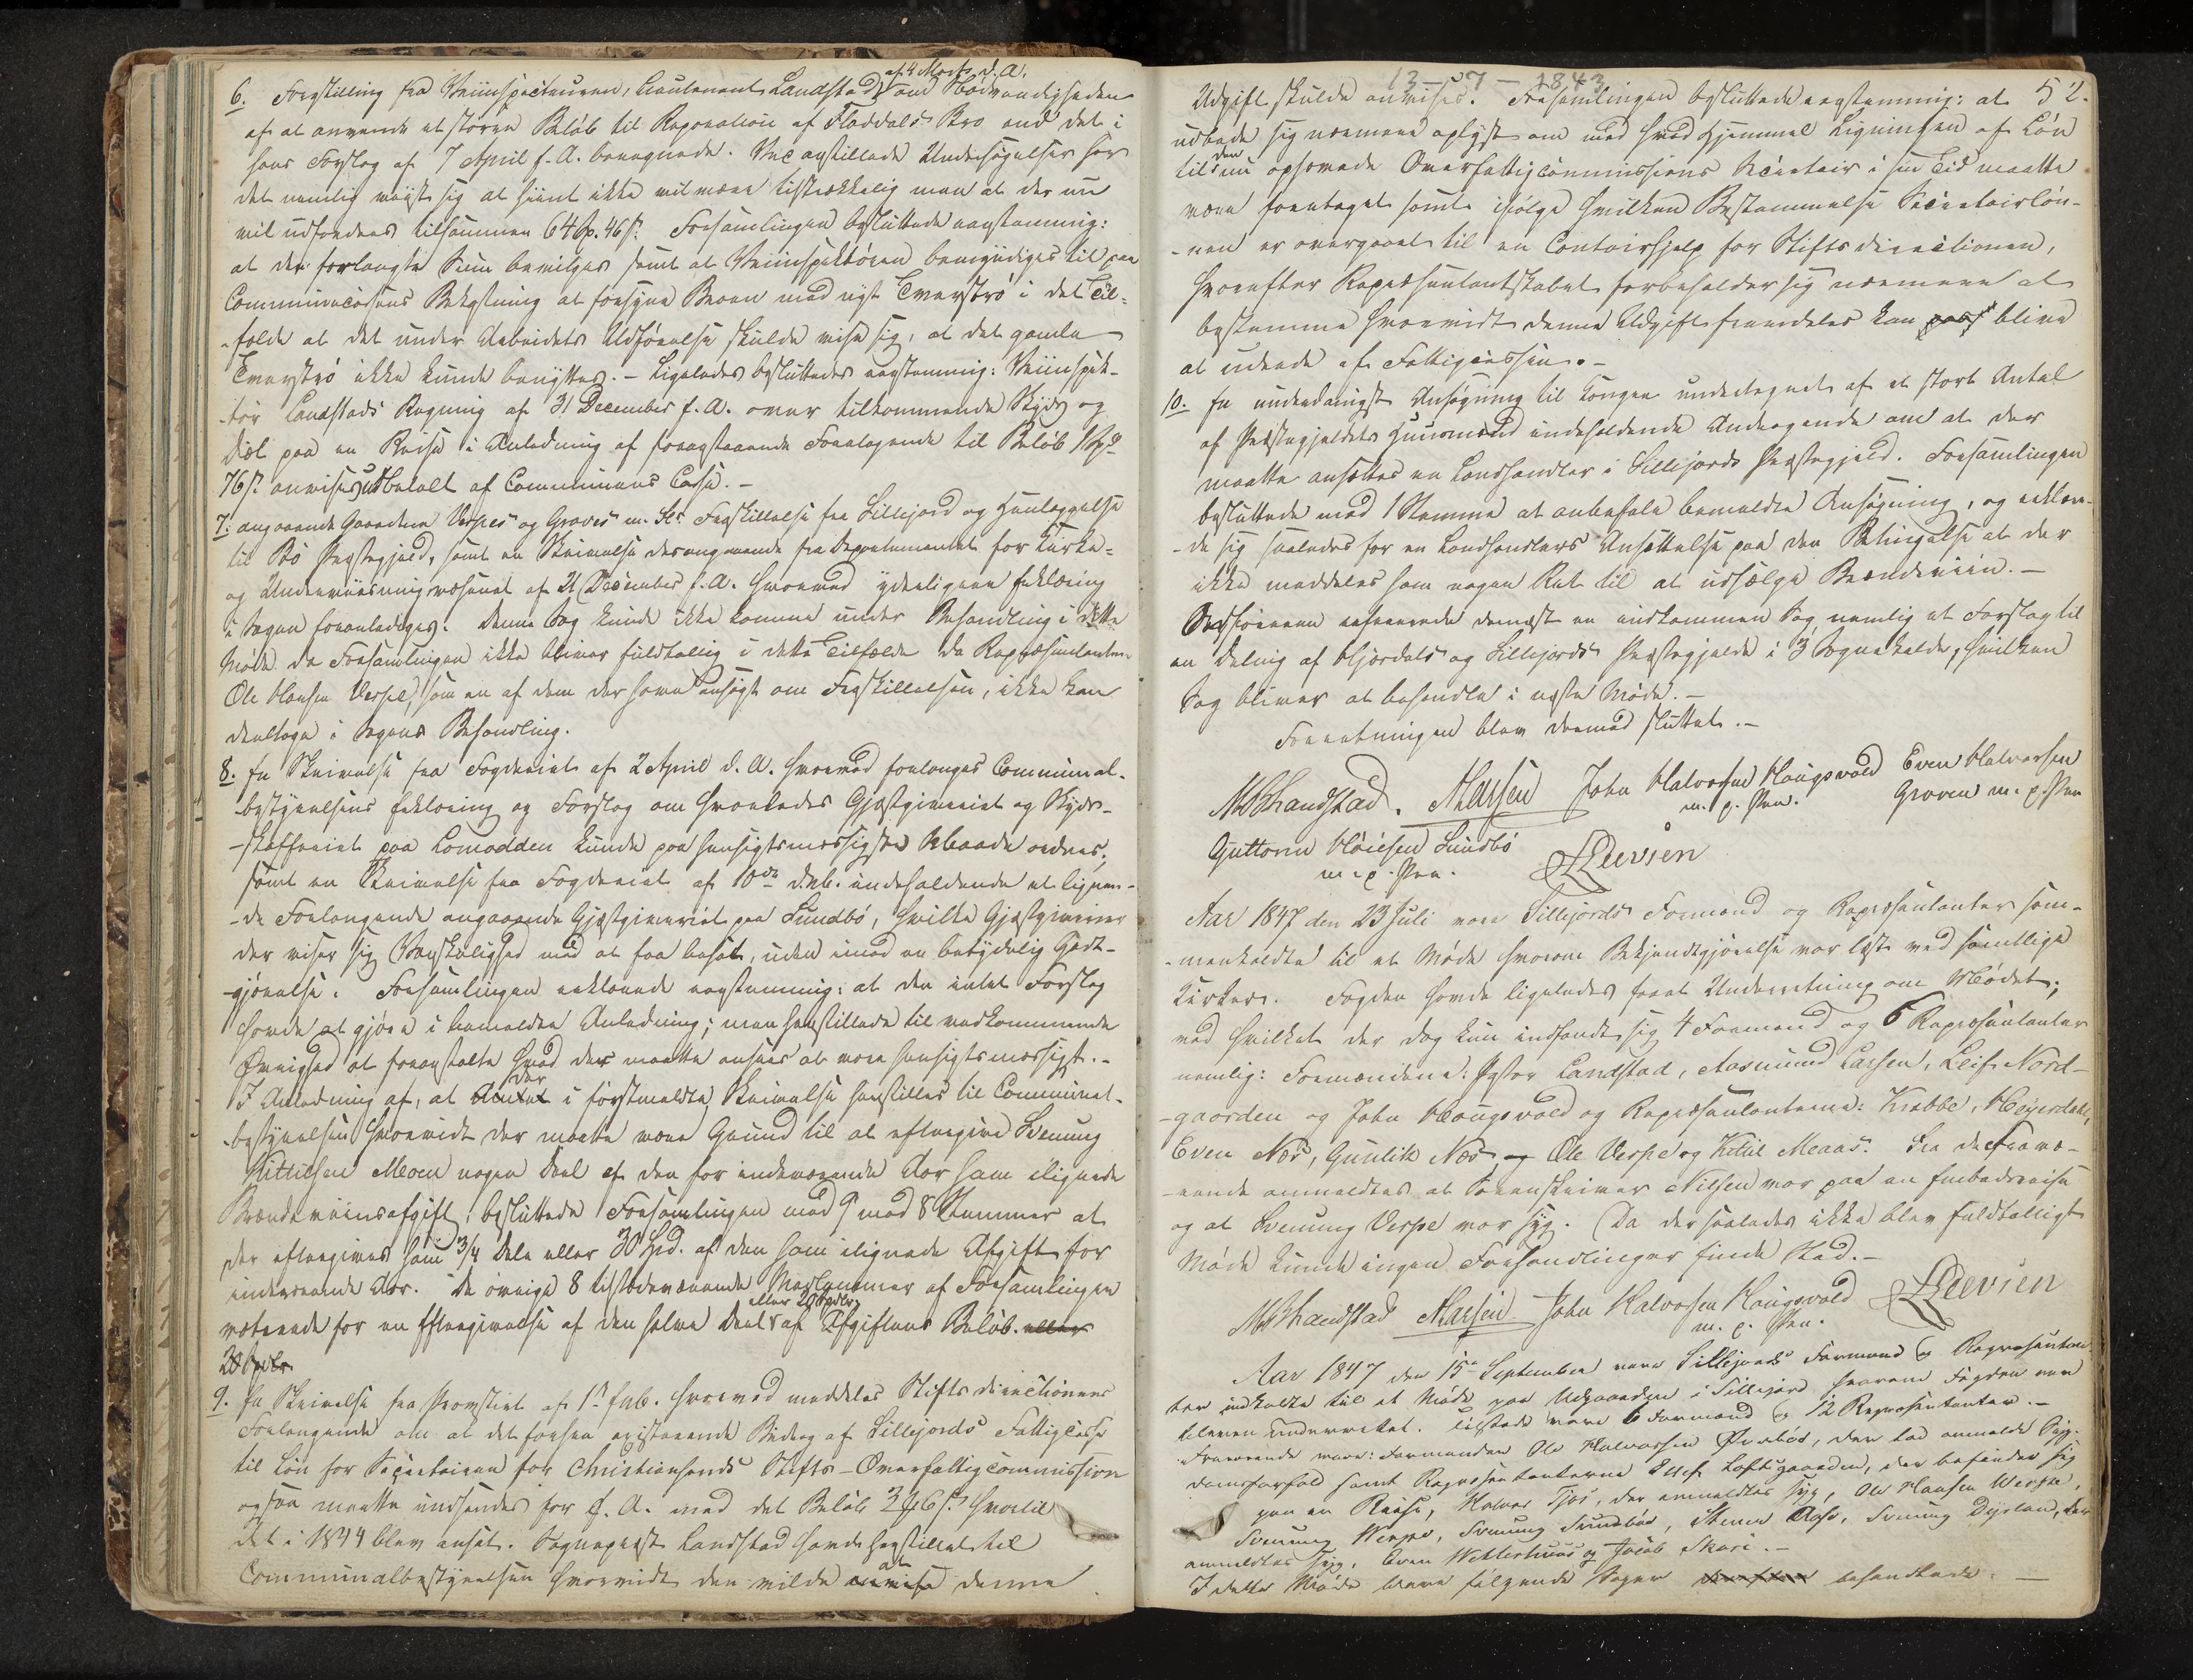 6. Forestilling fra Veiinspecteuren, Lieutenant Landstad, af 4 Marts d. A. om Nødvendigheden
af at anvende et større Beløb til Reparation af Fladdals Bro end det i
hans Forslag af 7 April f. A. beregnede. Ved anstillede Undersøgelser har
det nemlig viist sig at hiint ikke vil være tilstrækkelig men at der nu
vil udfordres tilsammen 64 Spd. 46 s. Forsamlingen besluttede eenstemmig:
at den forlangte Sum bevilges samt at Veiinspektøren bemyndiges til paa
Communecassens Bekostning at forsyne Broen med nyt Tverstrø i det Til-
fælde at det under Arbeidets Udførelse skulde vise sig, at det gamle
Tverstrø ikke kunde benyttes. - Ligeledes besluttedes eenstemmig: Veiinspek-
tør Landstads Regning af 31 December f. A. over tilkommende Skyds og
Diæt paa en Reise i Anledning af foranstaaende Foretagende til Beløb 1 Spd
76 s. anvises udbetalt af Communens Casse. -
7. angaaende Gaardene Verpes og Graves m. Fl. Fraskillelse fra Sillejord og Henlæggelse
til Bø Præstegjeld, samt en Skrivelse desangaaende fra Departementet for Kirke-
og Underviisningsvæsenet af 21 December f. A. hvorved yderligere Erklæring
i Sagen foranlediges. Denne Sag kunde ikke komme under Behandling i dette
Møde da Forsamlingen ikke bliver fuldtallig i dette Tilfælde da Repræsentanten
Ole Hansen Verpe, som en af dem der have ansøgt om Fraskillelsen, ikke kan
deeltage i Sagens Behandling.
8. En Skrivelse fra Fogderiet af 2 April d. A. hvorved forlanges Communal-
bestyrelsens Erklæring og Forslag om hvorledes Gjæstgiveriet og Skyds-
skafferiet paa Lomodden kunde paa hensigtsmæssigste Maade ordnes;
samt en Skrivelse fra Fogderiet af 10de ds. indeholdende et lignen-
-de Forlangende angaaende Gjæstgiveriet paa Sundbø, hvilke Gjæstgiverier
der viser sig Vanskelighed ved at faae besat, uden imod en betydelig Godt-
gjørelse. Forsamlingen erklærede eenstemmig: at den intet Forslag
havde at gjøre i bemeldte Anledning; men henstillede til vedkommende
Øvrighed at foranstalte hvad der maatte ansees at være hensigtsmæssigst. -
I Anledning af, at der i førstmeldte Skrivelse henstilles til Communal-
bestyrelsen hvorvidt der maatte være Grund til at eftergive Svenung
Kittilsen Moen nogen Deel af den for indeværende Aar ham ilignede
Brændeviinsafgift, besluttede Forsamlingen med 9 mod 8 Stemmer at
der eftergives ham 3/4 Dele eller 30 Spd. af den ham ilignede Afgift for
indeværende Aar. De øvrige 8 tilstedeværende Medlemmer af Forsamlingen
voterede for en Eftergivelse af den halve Deel eller 20 Spdlr. af Afgiftens Beløb. eller
20 Spdlr.
9. En Skrivelse fra Provstiet af 1ste Feb. hvorved meddeles Stiftsdirectionens
Forlangende om at det forhen existerende Bidrag af Sillejords Fattigcasse
til Løn for Secretairen for Christiansands Stifts-Overfattigcommission
ogsaa maatte indsendes for f. A. med det Beløb hvortil
det i 1844 blev ansat. Sognepræst Landstad havde henstillet til
Communalbestyrelsen hvorvidt den vilde at denne
13-7-1843
Udgift skulde anvises. Forsamlingen besluttede eenstemmig: at 52.
udbede sig nærmere oplyst om med hvad Hjemmel Ligningen af Løn
til den nu ophævede Overfattigcommissions Secretair i sin Tid maatte
være foretaget samt ifølge hvilken Bestemmelse Secretairløn-
-nen er overgaaet til en Contoirhjelp for Stiftsdirectionen,
hvorefter Repræsentantskabet forbeholder sig nærmere at
bestemme hvorvidt denne Udgift fremdeles kan blive
at udrede af Fattigcassen. -
10. En underdanigst Ansøgning til Kongen undertegnet af et stort Antal
af Præstegjeldets Huusmænd indeholdende Andragende om at der
maatte ansættes en Landhandler i Sillejords Præstegjeld. Forsamlingen
besluttede med 1 Stemme at anbefale bemeldte Ansøgning, og erklære-
-de sig saaledes for en Landhandlers Ansættelse paa den Betingelse at der
ikke meddeles ham nogen Ret til at udsælge Brændeviin. -
Ordføreren refererede dernæst en indkommen Sag nemlig et Forslag til
en Deling af Hjerdals og Sillejords Præstegjelde i 3 Sognekalde, hvilken
Sag bliver at behandle i næste Møde. -
Forretningen blev dermed sluttet. -
MBLandstad. ALarsen John Halvorsen Haugsvold Even Halvorsen
m. p. Pen. Graven m. p. Pen
Guttorm Høiesen Sundbø LLeevsen
m. p. Pen.
Aar 1847 den 23 Juli vare Sillejords Formænd og Repræsentanter sam-
menkaldte til et Møde hvorom Bekjendtgjørelse var læst ved samtlige
Kirker. Fogden havde ligeledes faaet Underretning om Mødet;
ved hvilket der dog kun indfandt sig 4 Formænd og 6 Repræsentanter
nemlig: Formændene: Pastor Landstad, Aasmund Larsen, Leif Nord-
-gaarden og John Haugsvold og Repræsentanterne: Krabbe, Heyerdahl,
Even Næs, Gunlik Næs og Ole Verpe og Kittil Meaas. Fra de Fravæ-
-rende anmeldtes at Sorenskriver Nilsen var paa en Embedsreise
og at Svenung Verpe var syg. Da der saaledes ikke blev fuldtalligt
Møde kunde ingen Forhandlinger finde Sted. -
MBLandstad ALarsen John Halvorsen Haugsvold LLeevsen
m. p. Pen.
Aar 1847 den 15de September vare Sillejords Formænd og Repræsentan-
ter indkaldte til et Møde paa Udgaarden i Sillejord hvorom Fogden var
bleven underrettet. Tilstede vare 6 Formænd og 12 Repræsentanter. -
Fraværende vare: Formanden Ole Halvorsen Øverbø, der lod anmelde Syg-
domsforfald samt Repræsentanterne Loftsgaarden, der befinder sig
paa en Reise, Halvor Tjøs, der anmeldtes syg, Ole Hansen Verpe,
Svenung Verpe, Svenung Sundbø, Aase, Svenung Dyrland, der
anmeldtes syg, Even og Jacob Skori. -
I dette Møde bleve følgende Sager behandlede. -